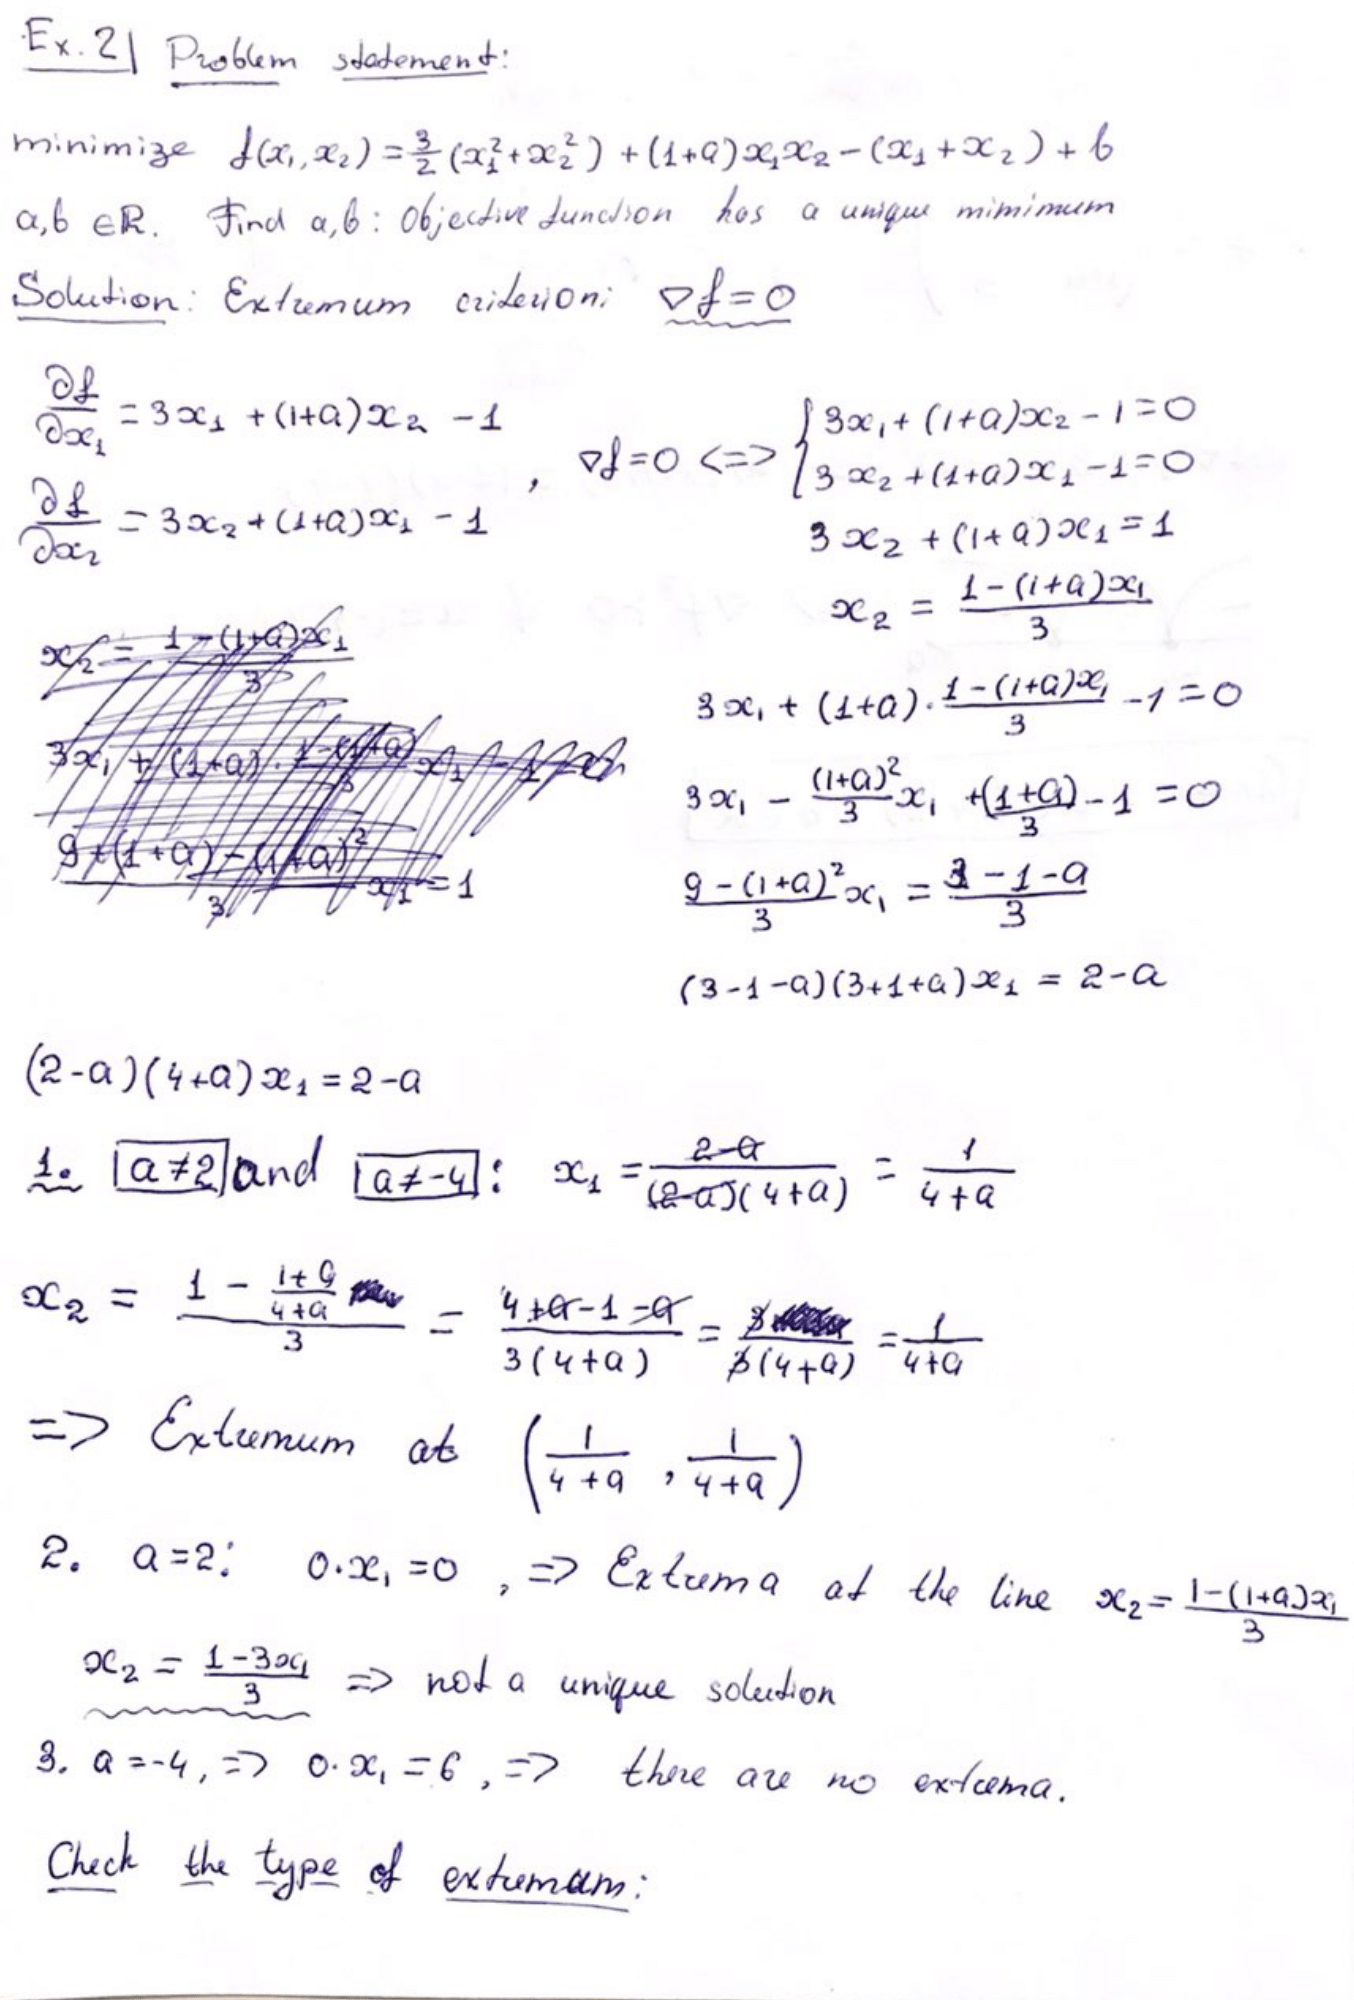 Ex. 2| Problem statement:
minimize f(x₁, x₂) = 3/2 (x₁² + x₂²) + (1+a)x₁x₂ - (x₁ + x₂) + b
a, b ∈ R. Find a, b : Objective function has a unique mimimum
Solution: Extremum criterion: ∇f = 0
∂f/∂x₁ = 3x₁ + (1+a)x₂ - 1
∂f/∂x₂ = 3x₂ + (1+a)x₁ - 1
, ∇f = 0 <=> { 3x₁ + (1+a)x₂ - 1 = 0
3x₂ + (1+a)x₁ - 1 = 0
3x₂ + (1+a)x₁ = 1
x₂ = (1 - (1+a)x₁)/3
3x₁ + (1+a) · (1 - (1+a)x₁)/3 - 1 = 0
3x₁ - (1+a)²/3 x₁ + (1+a)/3 - 1 = 0
(9 - (1+a)²)/3 x₁ = (3 - 1 - a)/3
(3 - 1 - a)(3 + 1 + a)x₁ = 2 - a
x₂ = (1 - (1+a)x₁)/3
3x₁ + (1+a) · (1 - (1+a))/3 x₁ - 1 = 0
(9 + (1+a) - (1+a)²)/3 x₁ = 1
(2 - a)(4 + a)x₁ = 2 - a
1. a ≠ 2 and a ≠ -4 : x₁ = (2-a)/((2-a)(4+a)) = 1/(4+a)
x₂ = (1 - (1+a)/(4+a))/3 = (4+a-1-a)/(3(4+a)) = 3/(3(4+a)) = 1/(4+a)
=> Extremum at (1/(4+a), 1/(4+a))
2. a = 2: 0·x₁ = 0, => Extrema at the line x₂ = (1-(1+a)x₁)/3
x₂ = (1-3x₁)/3 => not a unique solution
3. a = -4, => 0·x₁ = 6, => there are no extrema.
Check the type of extremum: